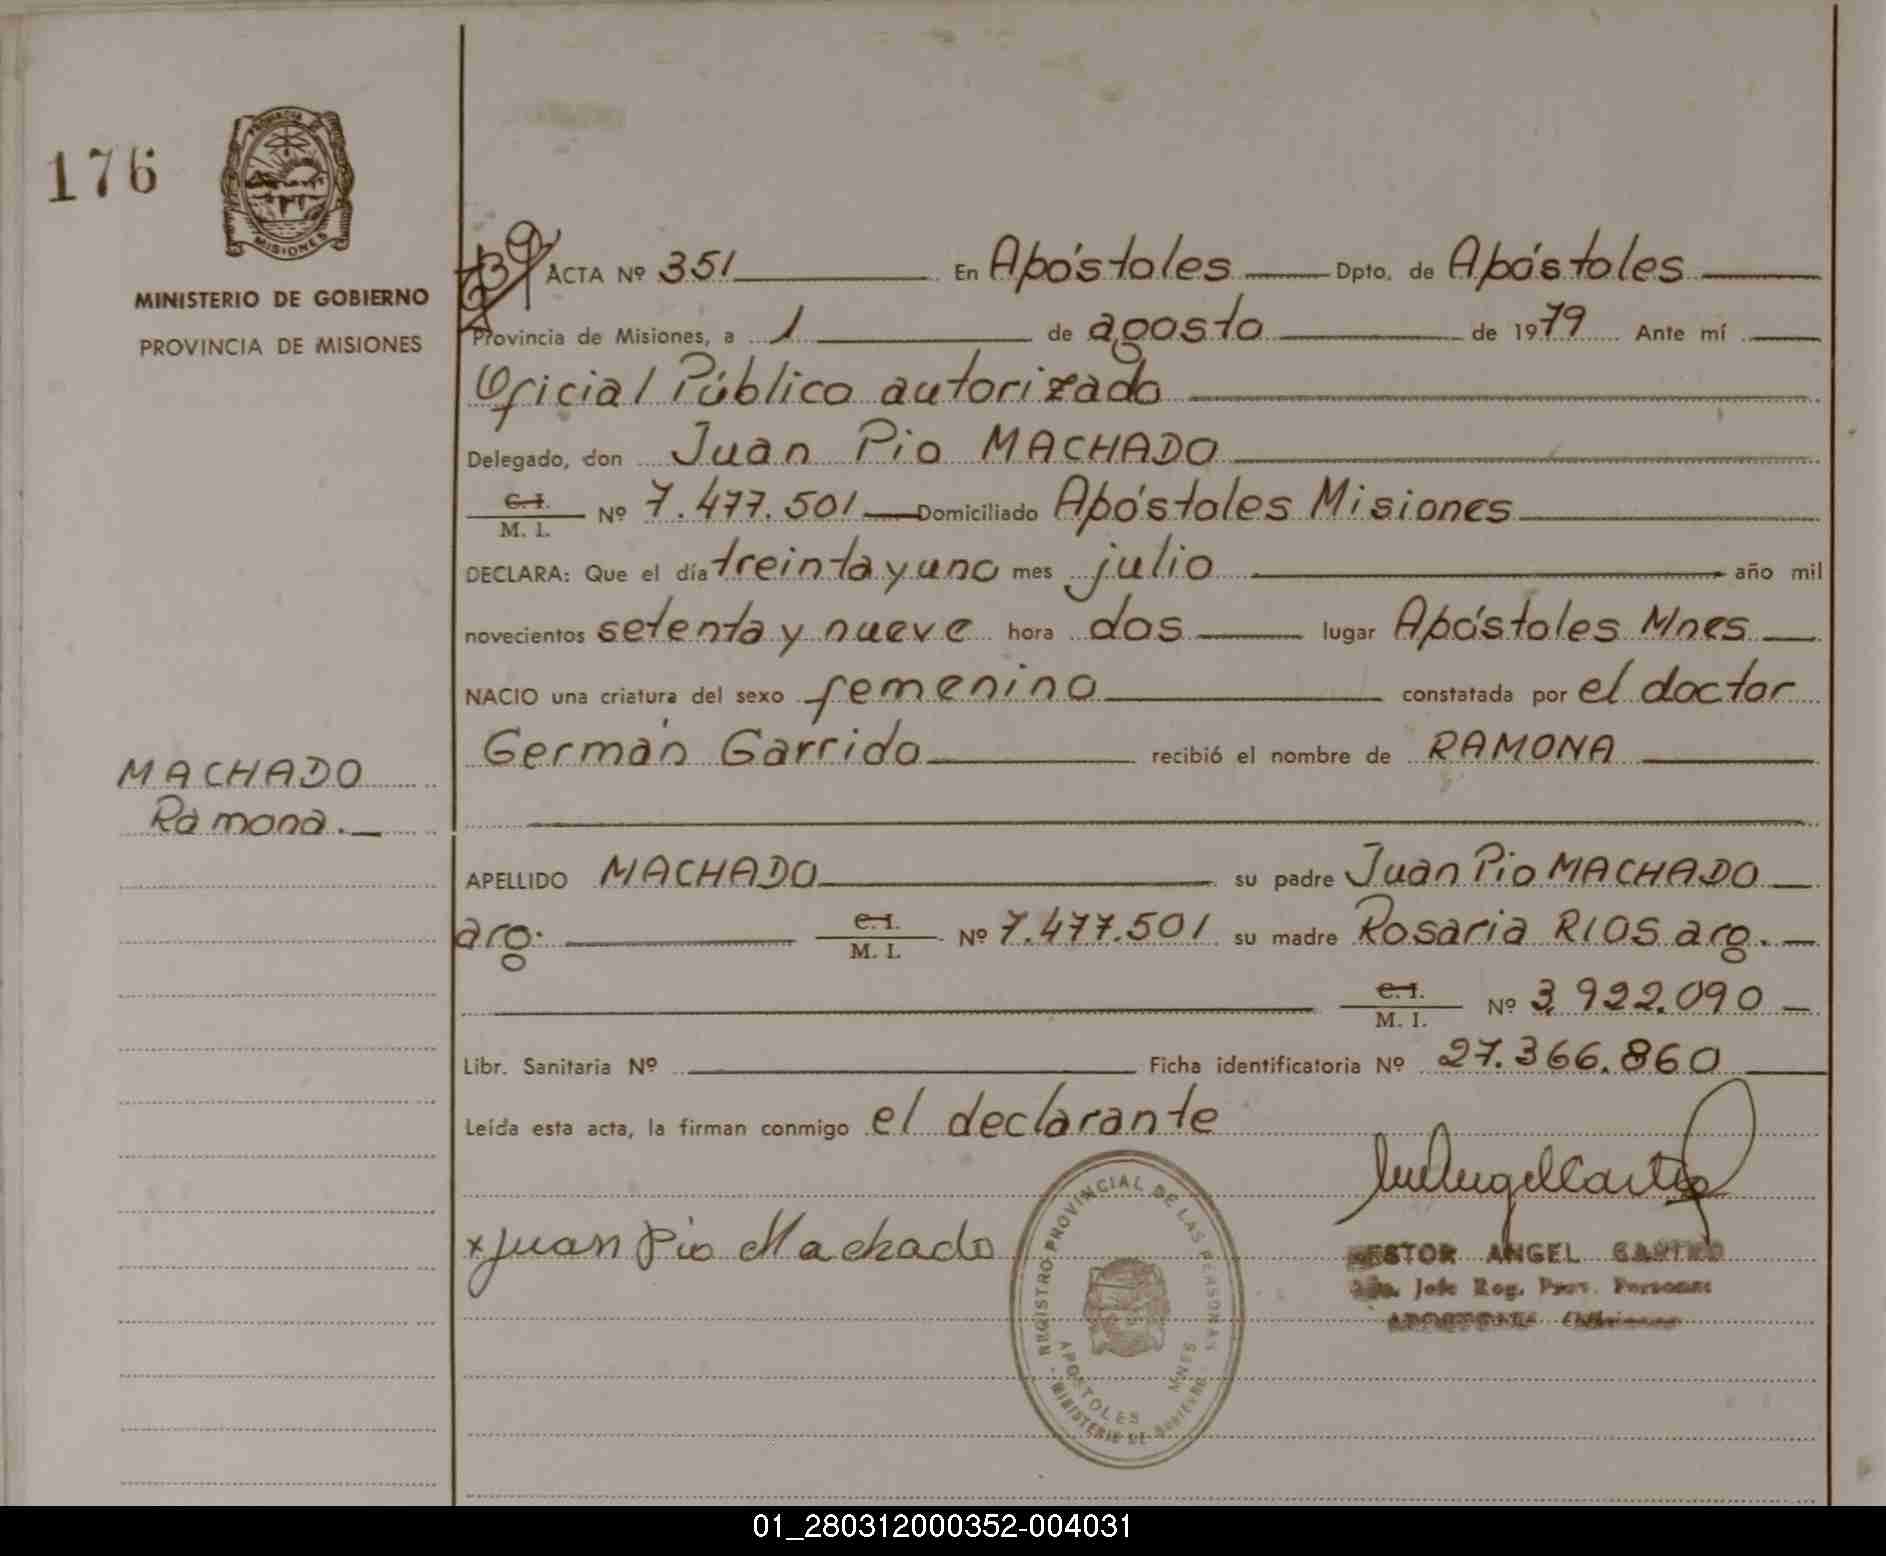 176
PROVINCIA DE
MISIONES
MINISTERIO DE GOBIERNO
PROVINCIA DE MISIONES
ACTA Nº 351 En Apóstoles Dpto. de Apóstoles
Provincia de Misiones, a 1 de agosto de 1979 Ante mí
Oficial Público autorizado
Delegado, don Juan Pio MACHADO
C. I.
M. I. Nº 7.477.501 Domiciliado Apóstoles Misiones
DECLARA: Que el día treinta y uno mes julio año mil
novecientos setenta y nueve hora dos lugar Apóstoles Mnes
NACIO una criatura del sexo femenino constatada por el doctor
Germán Garrido recibió el nombre de RAMONA
MACHADO
Ramona.
APELLIDO MACHADO su padre Juan Pio MACHADO
arg. C. I.
M. I. Nº 7.477.501 su madre Rosaria RIOS arg.
C. I.
M. I. Nº 3.922.090
Libr. Sanitaria Nº Ficha identificatoria Nº 27.366.860
Leída esta acta, la firman conmigo el declarante
x Juan Pio Machado
REGISTRO PROVINCIAL DE LAS PERSONAS
APOSTOLES MNES
MINISTERIO DE GOBIERNO
NESTOR ANGEL CASTRO
Jefe Reg. Prov. Personas
01_280312000352-004031